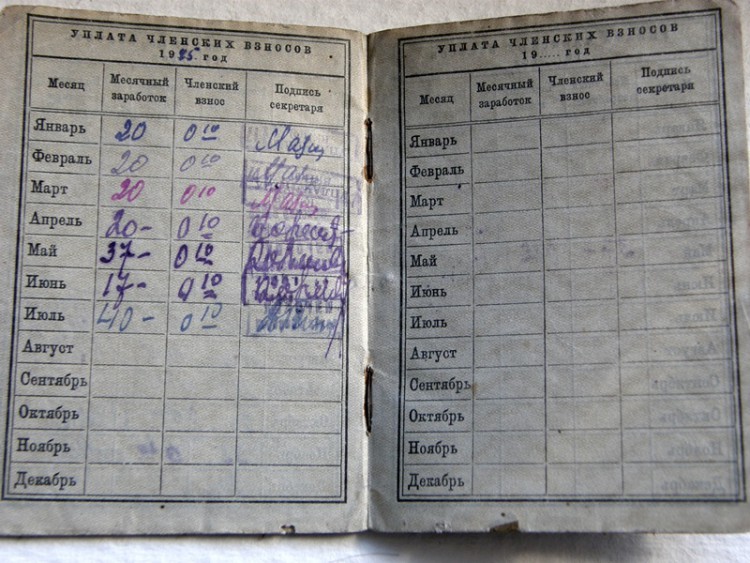 УПЛАТА ЧЛЕНСКИХ ВЗНОСОВ
1975. год
Месяц Месячный заработок Членский взнос Подпись секретаря
Январь 20 0 10
Февраль 20 0 10
Март 20 0 10
Апрель 20- 0 10
Май 37- 0 10
Июнь 17- 0 10
Июль 40- 0 10
Август
Сентябрь
Октябрь
Ноябрь
Декабрь
УПЛАТА ЧЛЕНСКИХ ВЗНОСОВ
19..... год
Месяц Месячный заработок Членский взнос Подпись секретаря
Январь
Февраль
Март
Апрель
Май
Июнь
Июль
Август
Сентябрь
Октябрь
Ноябрь
Декабрь